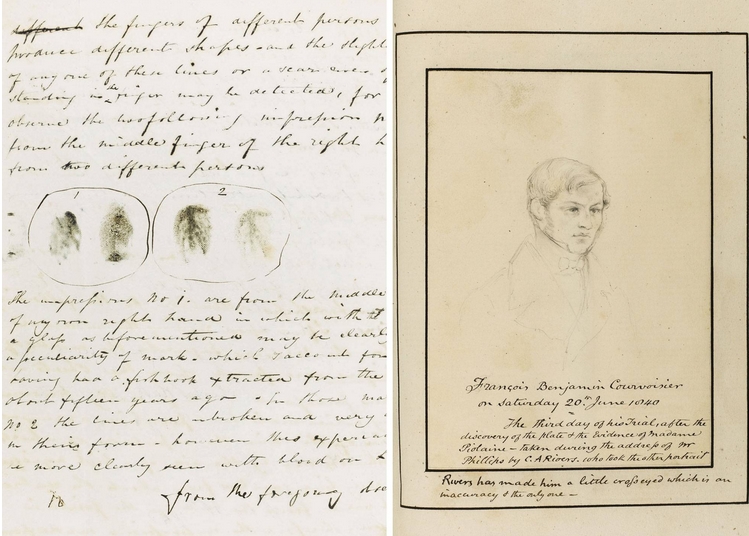 different the fingers of different persons
produce different shapes - and the slight
of any one of these lines or a scar even of
standing in the finger may be detected, for
observe the two following impressions n
from the middle finger of the right h
from two different persons
1 2
The impressions No 1. are from the middle
of my own right hand in which with
a glass as beforementioned may be clearly
a peculiarity of mark - which I account for
having had a fishhook extracted from the
about fifteen years ago - In those ma
No 2 the lines are unbroken and very
in their form - however this experi
is more clearly seen with blood on
from the foregoing
François Benjamin Courvoisier
on Saturday 20th June 1840
The third day of his Trial, after the
discovery of the plate & the Evidence of Madame
Piolaine - taken during the address of Mr
Phillips by C. A Rivers. who took the other portrait
Rivers has made him a little cross eyed which is an
inaccuracy & the only one -